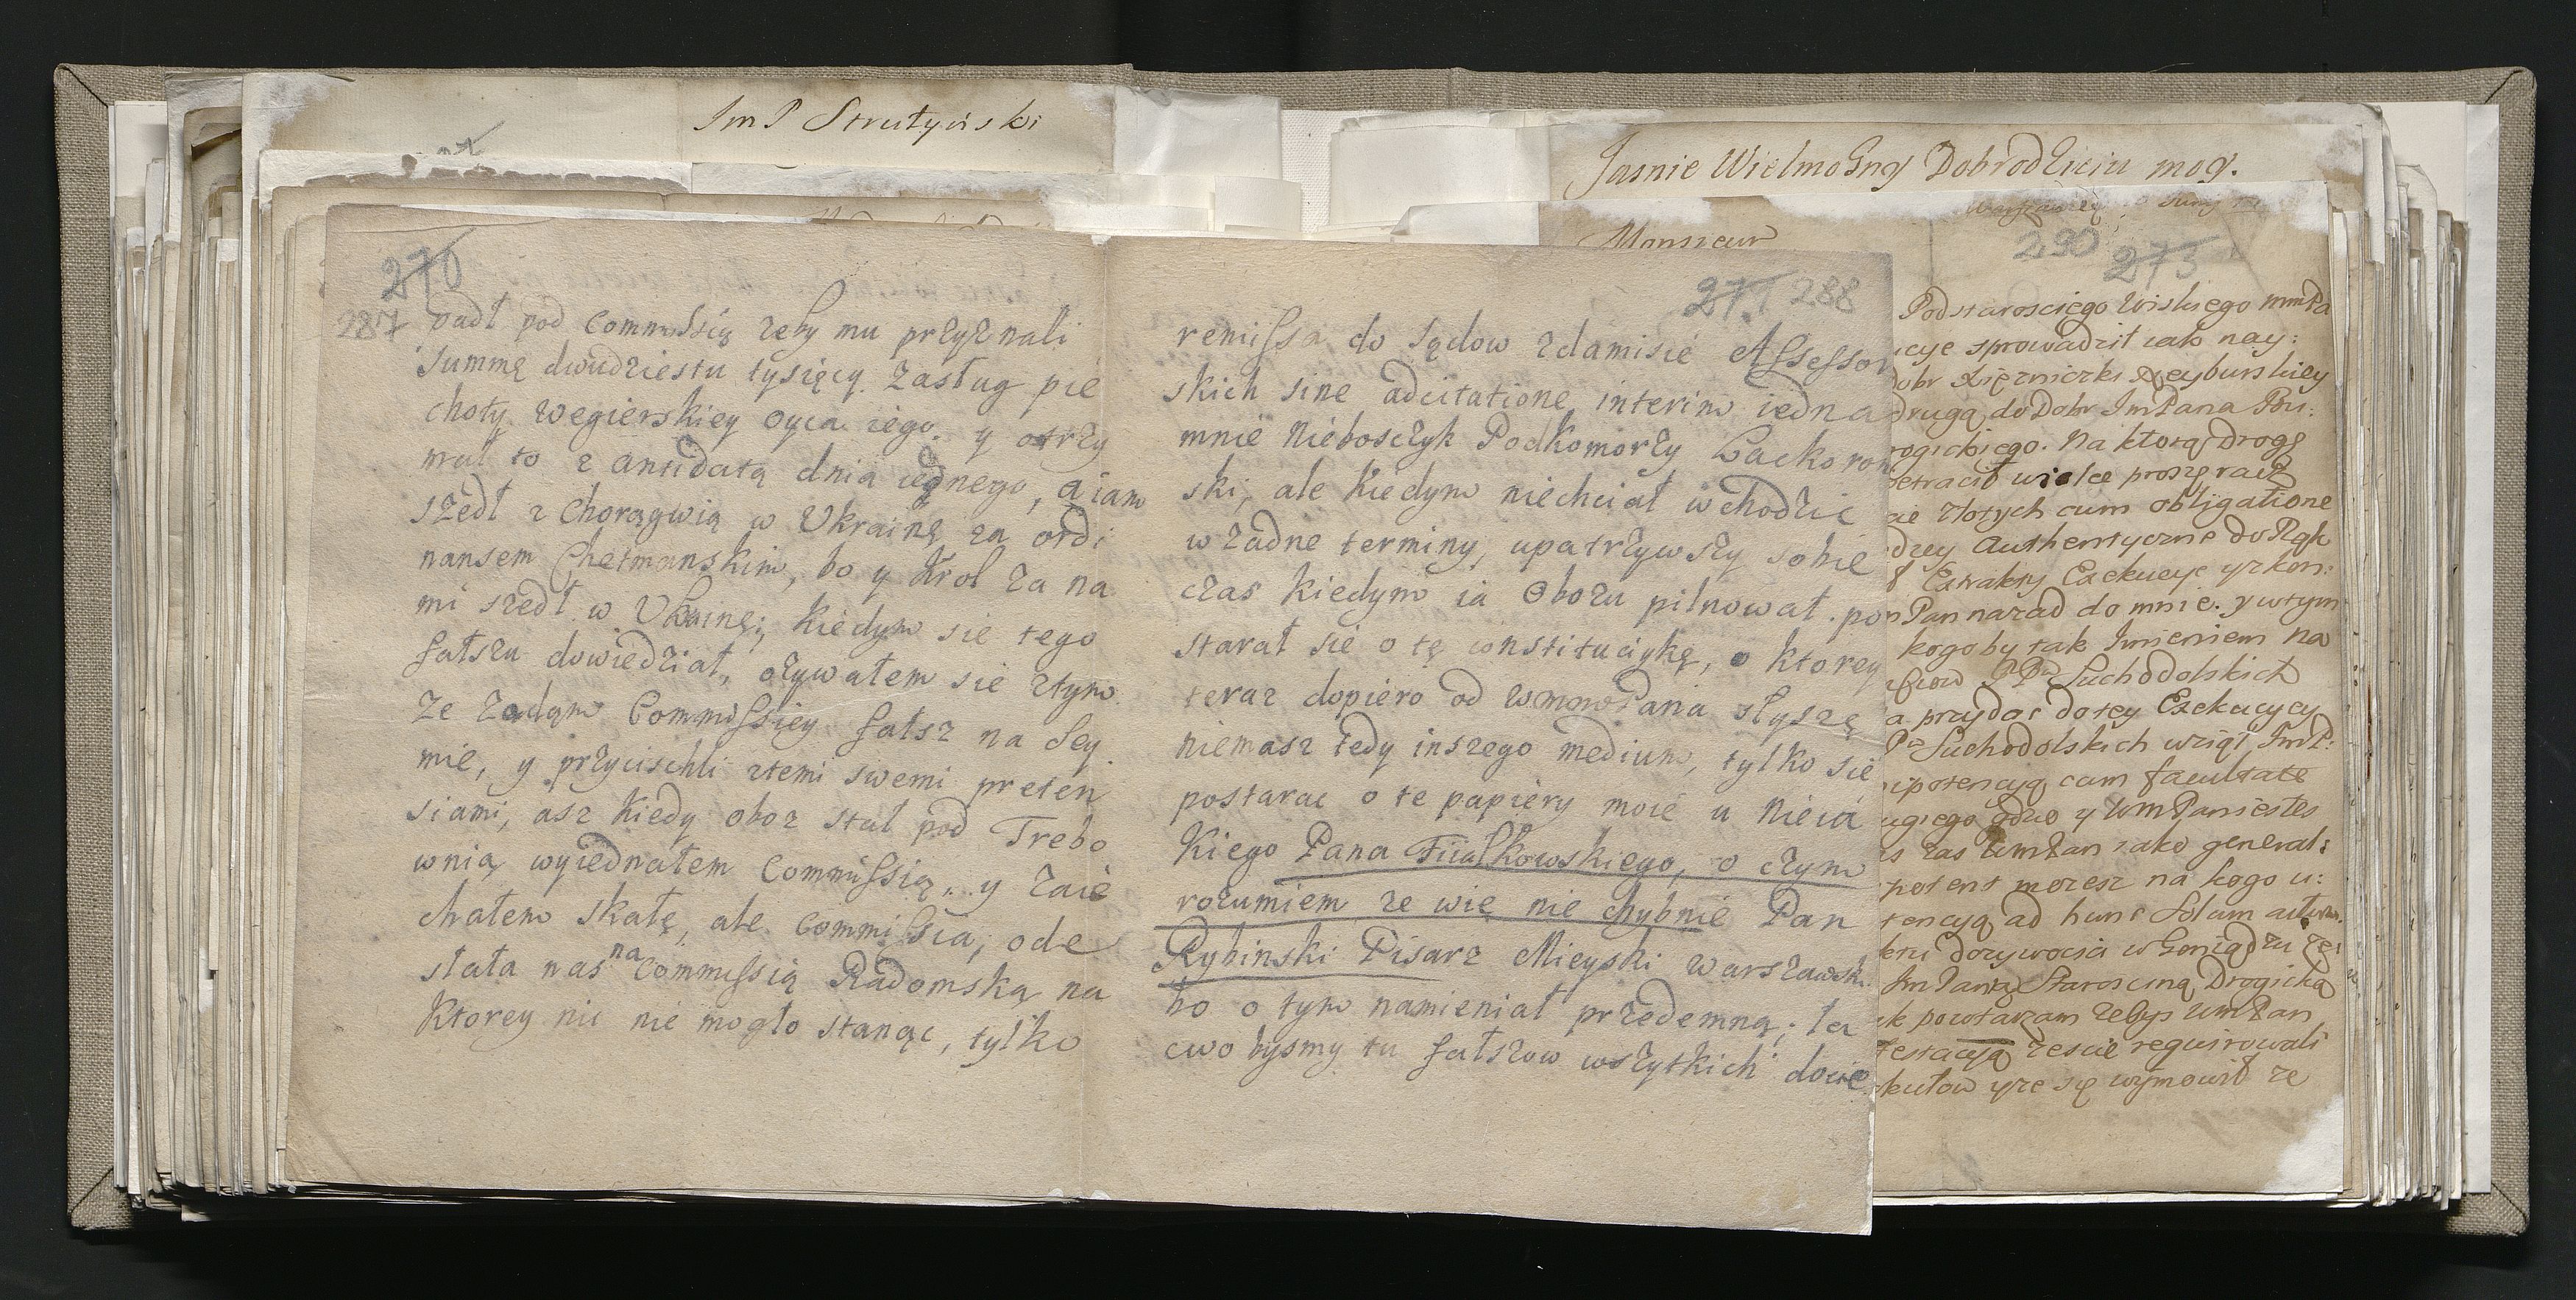 Im P Strutyński
276
287 padł pod Commissią zeby mu przyznali
summę dwudziestu tysięcy zasług pie
choty wegierskiey oyca iego y otrzy
mał to z antidatą dnia iednego, a iam
szedł z Chorągwią w Ukrainę za ordi
nansem Chetmanskim, bo y Krol za na
mi szedł w Ukrainę; kiedym sie tego
fałszu dowiedział, ozywałem sie ztym
ze zadam Commissiey fałsz na Sey
mie, y przycischli ztemi swemi preten
siami, asz kiedy oboz stał pod Trebo
wnią wyiednałem Commissią, y zaie
chałem skałę, ale Commissia, ode
słała nas na Commissią Radomską na
Ktorey nic nie mogło stanąc, tylko
Jasnie Wielmozny Dobrodzieiu mog.
Monsieur
271 288
remissa do sądow zdamisie Assessor
skich sine adcitatione interim iedna
mnie Nieboszczyk Podkomorzy Lackoron
ski, ale kiedym niechciał wchodzic
w zadne terminy, upatrzywszy sobie
czas kiedym ia Obozu pilnował. po
starał sie o tę constitucikę, o ktorey
teraz dopiero od wmmPana słyszę
niemasz tedy inszego medium, tylko sie
postarac o te papiery moie u Nieia
Kiego Pana Fiiałkowskiego, o czym
rozumiem ze wie nie chybnie Pan
Rybinski Pisarz Mieyski Warszawsk.
bo o tym namieniał przedemną; ła
cwo bysmy tu fałszow wszytkich docie
290 273
Podstarosciego Wiskiego mmPa
cye sprowadził iako nay:
dobr Xięzniczki Neyburskiey
drugą do Dobr ImPana Pou:
rogickiego. Na ktorą Drogę
etracił wielce proszę racz
ie złotych cum obligatione
dzey Authentyczne do Rąk
Extrakty Exekucye yzkon:
Pan nazad do mnie. y wtym
kogoby tak Imieniem na
PPw Suchodolskich
a przydac do tey Exekucycy
Pw Suchodolskich wziął ImP:
ipotencyą cum facultate
ugiego gdzie y WmPan iestes
s zas WmPan iako general:
potent mozesz na kogo u:
tencyą ad hunc Solum actum.
krzi dozywocia w Goniądzu ze:
ImPanią Staroscing Drogicką
k powtarzam zebys WmPan
testacyą zescie requirowali
kutow yze się wymowił ze